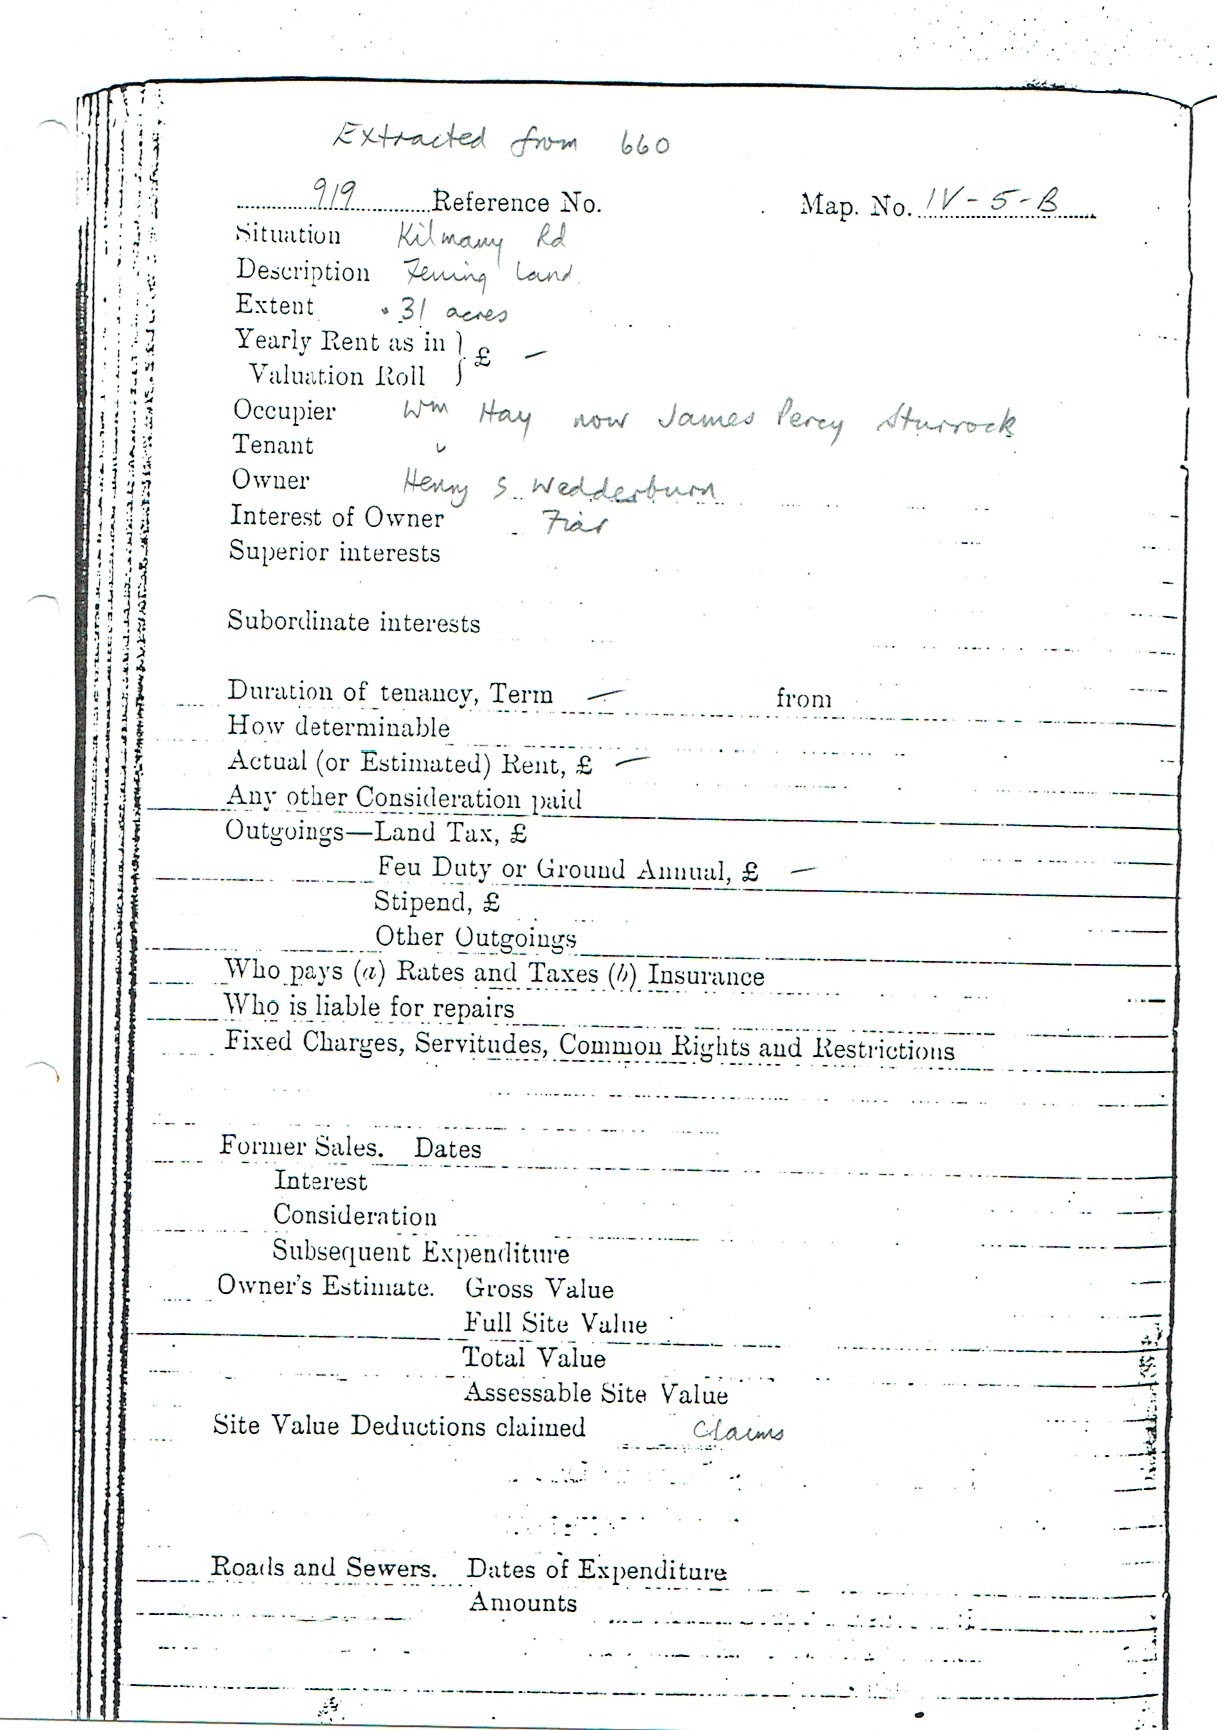 Extracted from 660
919 Reference No. Map. No. IV-5-B
Situation Kilmany Rd
Description Feuing Land
Extent .31 acres
Yearly Rent as in } £ —
Valuation Roll
Occupier Wm Hay now James Percy Sturrock
Tenant "
Owner Henry S Wedderburn
Interest of Owner Fiar
Superior interests
Subordinate interests
Duration of tenancy, Term — from
How determinable
Actual (or Estimated) Rent, £ —
Any other Consideration paid
Outgoings—Land Tax, £
Feu Duty or Ground Annual, £ —
Stipend, £
Other Outgoings
Who pays (a) Rates and Taxes (b) Insurance
Who is liable for repairs
Fixed Charges, Servitudes, Common Rights and Restrictions
Former Sales. Dates
Interest
Consideration
Subsequent Expenditure
Owner's Estimate. Gross Value
Full Site Value
Total Value
Assessable Site Value
Site Value Deductions claimed Claims
Roads and Sewers. Dates of Expenditure
Amounts